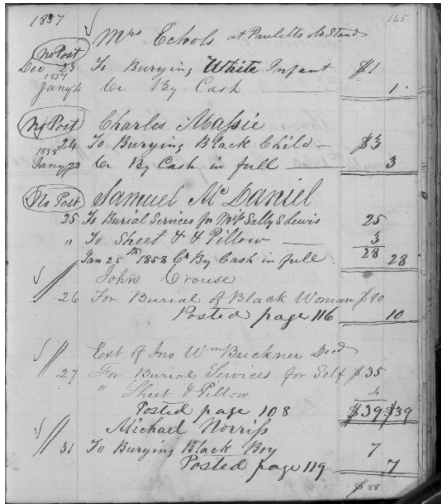 1857 165
Mrs Echols at Pauletts old Stand
No Post
Dec 23 To Burying White Infant $1
1857
Jany 4 Cr By Cash 1
No Post Charles Massie
24 To Burying Black Child $3
1858
Jany 23 Cr By Cash in full 3
No Post Samuel McDaniel
25 To Burial Services for Mrs Sally S Lewis 25
" To Sheet & Pillow 3
28
Jan 25th 1858 Cr By Cash in full 28
John Crouse
26 For Burial of Black Woman $10
Posted page 116 10
Ext of Jno Wm Buckner Decd
27 For Burial Services for Self $35
" Sheet & Pillow 4
Posted page 108 $39 $39
Michael Norriss
31 To Burying Black Boy 7
Posted page 119 7
$88